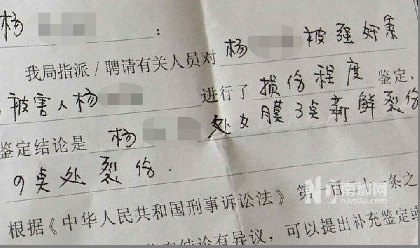 杨
：
我局指派／聘请有关人员对 杨 被强奸案
被害人杨 进行了 损伤程度 鉴定
鉴定结论是 杨 处女膜3点新鲜裂伤
9点处裂伤.
根据《中华人民共和国刑事诉讼法》第 十一条之
结论有异议，可以提出补充鉴定或
南都网